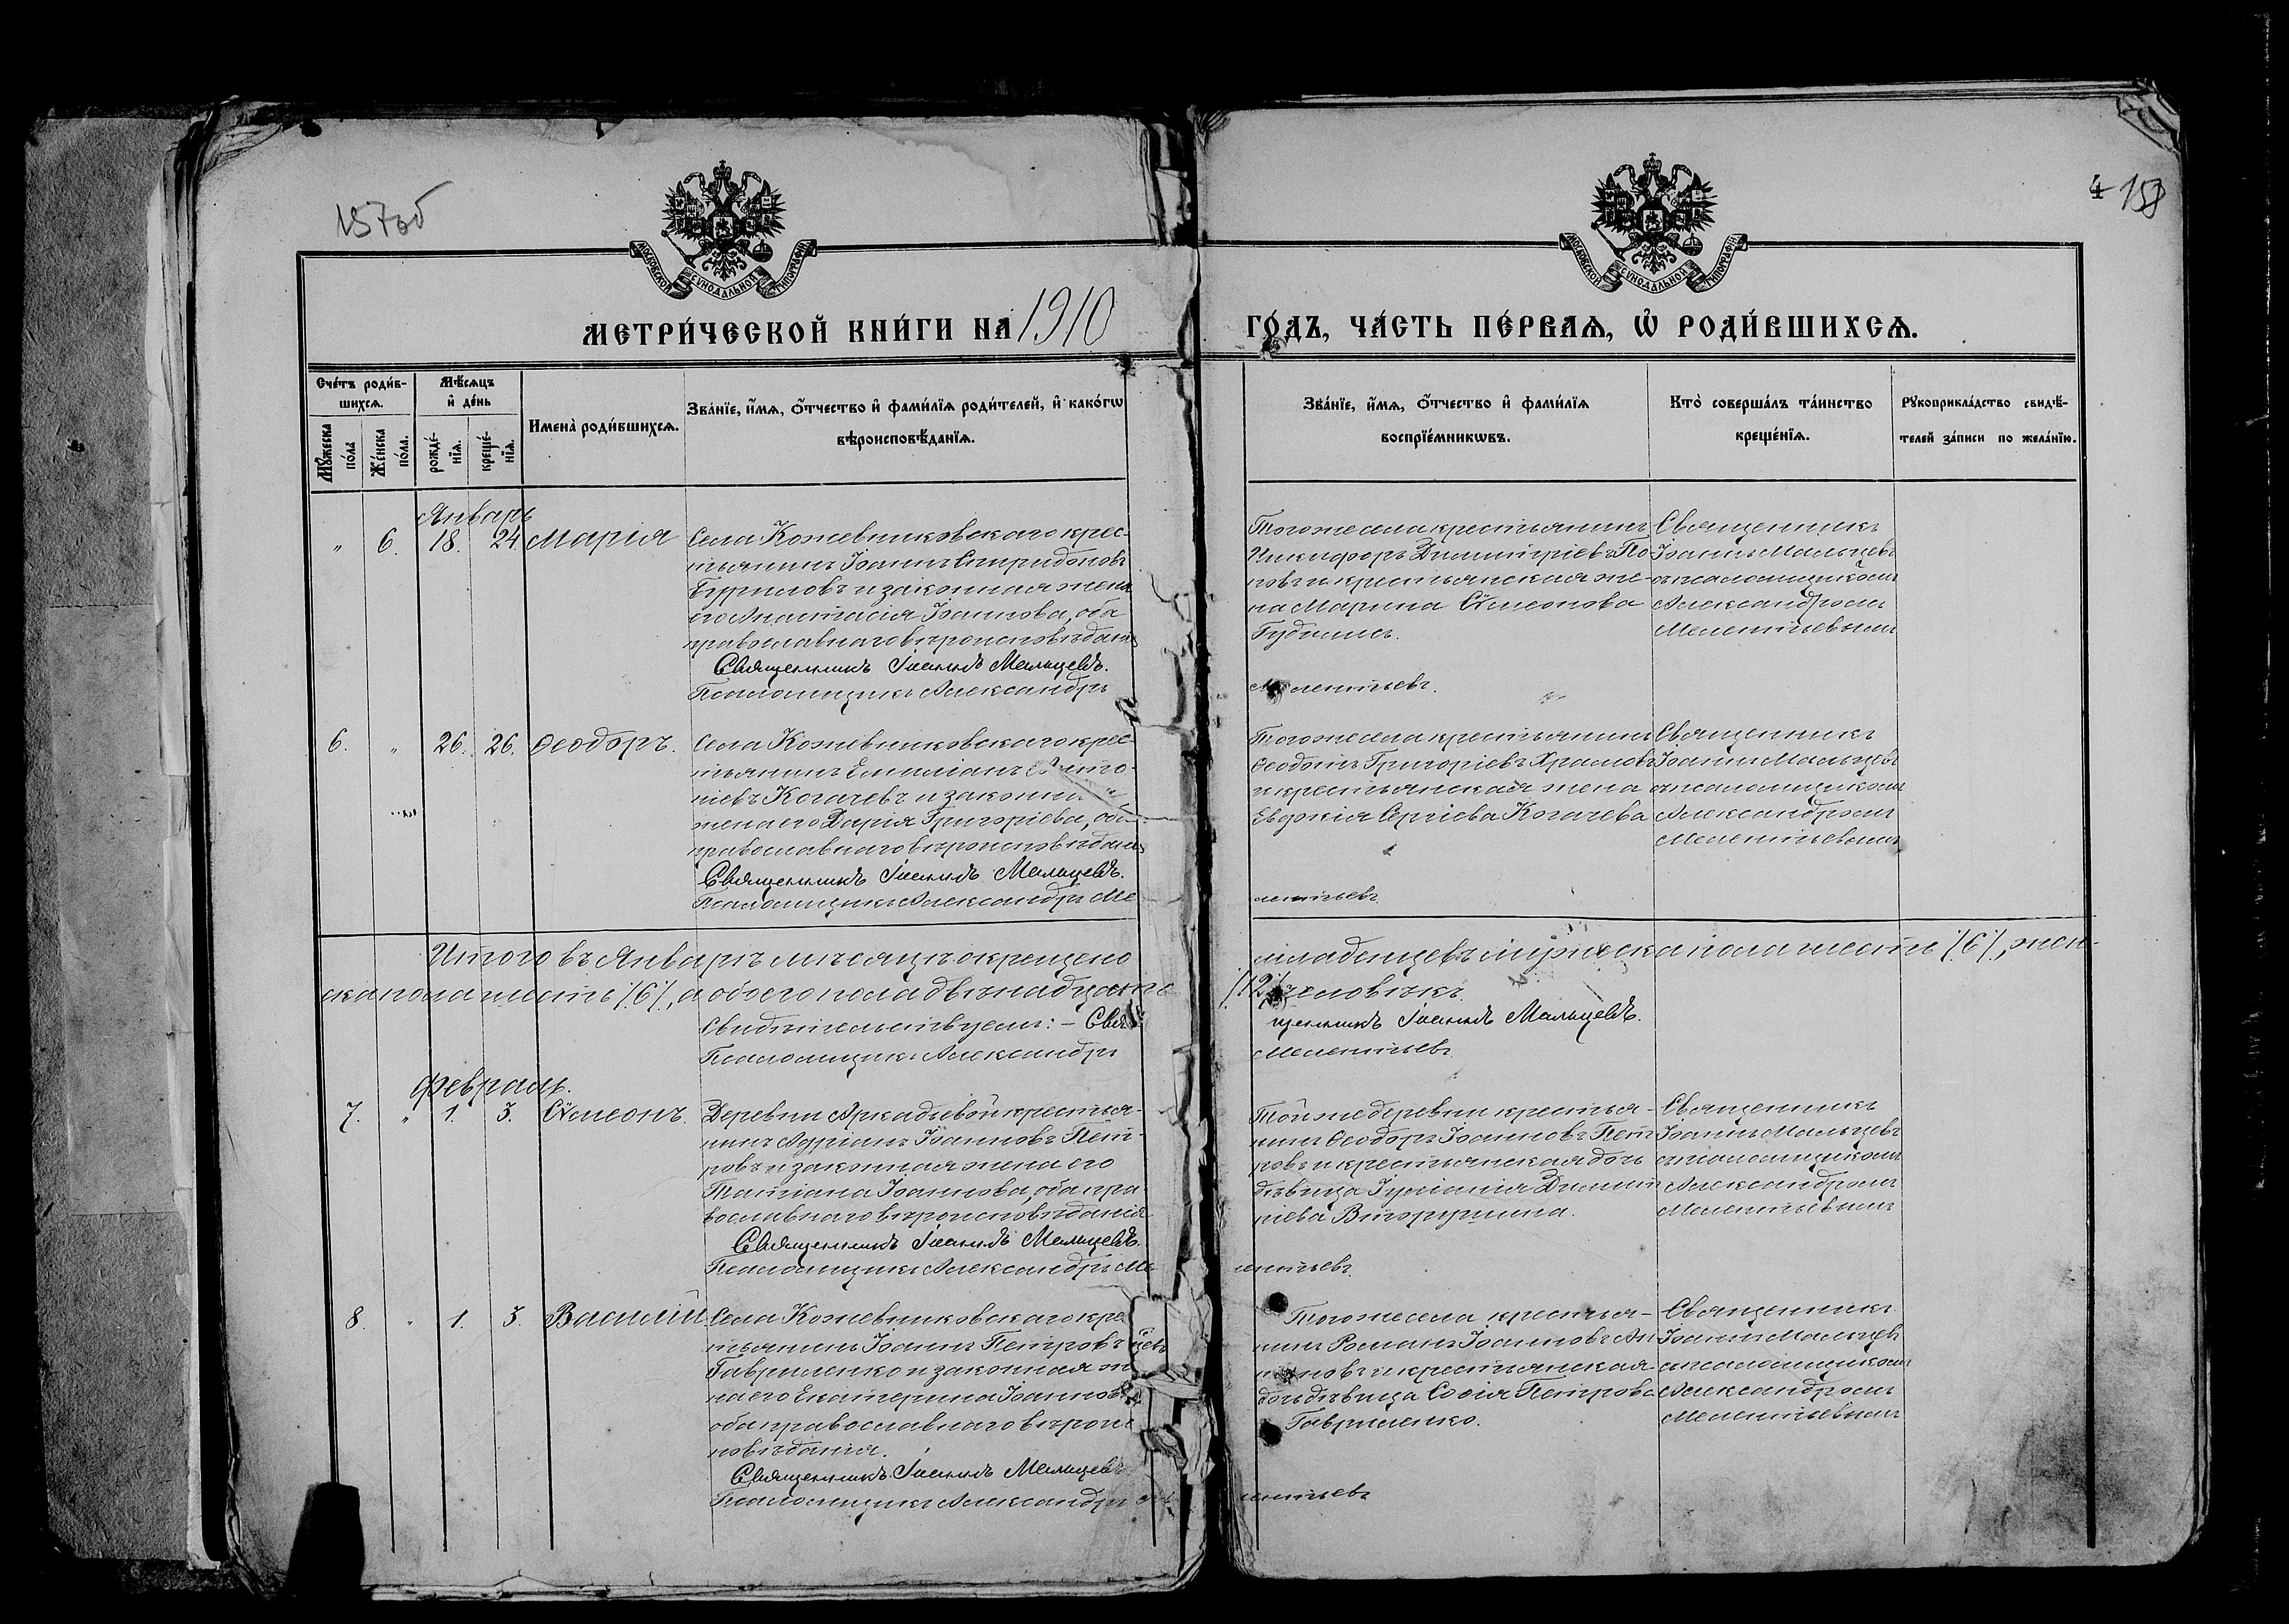 157об
4 158
МОСКОВСКОЙ СѴНОДАЛЬНОЙ ТИПОГРАФІИ
МОСКОВСКОЙ СѴНОДАЛЬНОЙ ТИПОГРАФІИ
МЕТРИ́ЧЕСКОЙ КНИ́ГИ НА 1910
ГО́ДЪ, ЧА́СТЬ ПЕ́РВАѦ, Ѡ҆ РОДИ́ВШИХСѦ.
Сче́тъ роди́в-
шихсѧ.
Мꙋ́жеска по́ла
Же́нска по́ла.
Мѣ́сѧцъ
и҆ де́нь
рожде́-
нїѧ.
креще́-
нїѧ.
Имена̀ роди́вшихсѧ.
Зва́нїе, и҆́мѧ, ѻ҆́тчество и҆ фами́лїѧ роди́телей, и҆ како́гѡ
вѣроисповѣ́данїѧ.
Зва́нїе, и҆́мѧ, ѻ҆́тчество и҆ фами́лїѧ
воспрїе́мникѡвъ.
Кто̀ соверша́лъ та́инство
креще́нїѧ.
Рꙋкоприкла́дство свидѣ́-
телей за́писи по жела́нїю.
Январь
" 6. 18. 24 Марія
Села Кожевниковскаго крес-
тьянинъ Іоаннъ Спиридоновъ
и законная жена
его Анастасія Іоаннова, оба
православнаго вѣроисповѣданія
Священникъ Іоаннъ Мальцевъ.
Псаломщикъ Александръ
Мелентьевъ.
Того же села крестьянинъ
Никифоръ Димитріевъ По-
повъ и крестьянская же-
на Марина Сѵмеонова
Священникъ
Іоаннъ Мальцевъ
съ псаломщикомъ
Александромъ
Мелентьевымъ
6. " 26. 26. Ѳеодоръ.
Села Кожевниковскаго крес-
тьянинъ Емиліанъ Анто-
ніевъ Когачевъ и законная
жена его Дарія Григоріева, оба
православнаго вѣроисповѣданія
Священникъ Іоаннъ Мальцевъ.
Псаломщикъ Александръ Ме
лентьевъ
Того же села крестьянинъ
Ѳеодотъ Григоріевъ Храмовъ
и крестьянская жена
Евдокія Сергіева Когачева
Священникъ
Іоаннъ Мальцевъ
съ псаломщикомъ
Александромъ
Мелентьевымъ
Итого въ Январѣ мѣсяцѣ окрещено младенцевъ мужеска пола шесть /6/, жен-
ска пола шесть /6/, а обоего пола двѣнадцать /12/ человѣкъ.
Свидѣтельствуемъ: – Священникъ Іоаннъ Мальцевъ.
Псаломщикъ Александръ Мелентьевъ
Февраль.
7. " 1. 3. Сѵмеонъ.
Деревни Аркадьевой крестья-
нинъ Адріанъ Іоанновъ Пет-
ровъ и законная жена его
Татіана Іоаннова, оба пра
вославнаго вѣроисповѣданія
Священникъ Іоаннъ Мальцевъ.
Псаломщикъ Александръ Ме
лентьевъ.
Той же деревни крестья-
нинъ Ѳеодоръ Іоанновъ Пет
ровъ и крестьянская дочь
дѣвица Іуліанія Димит
ріева Вторушина.
Священникъ
Іоаннъ Мальцевъ
съ псаломщикомъ
Александромъ
Мелентьевымъ
8. " 1. 3. Василій.
Села Кожевниковскаго кре
тьянинъ Іоаннъ Петровъ
Гавриленко и законная же
на его Екатерина Іоаннова
оба православнаго вѣроис
повѣданія.
Священникъ Іоаннъ Мальцевъ
Псаломщикъ Александръ Ме
лентьевъ
Того же села крестья-
нинъ Романъ Іоанновъ
и крестьянская
дочь дѣвица Софія Петрова
Гавриленко.
Священникъ
Іоаннъ Мальцевъ
съ псаломщикомъ
Александромъ
Мелентьевымъ